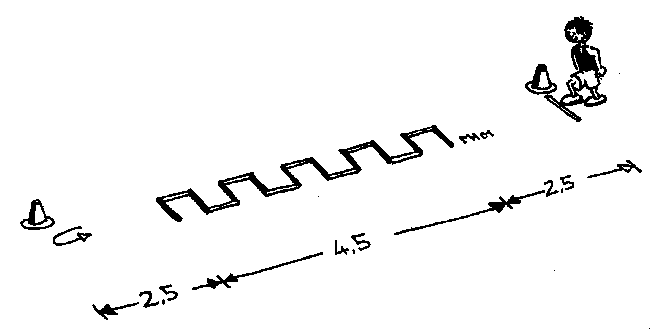 2,5
4,5
2,5